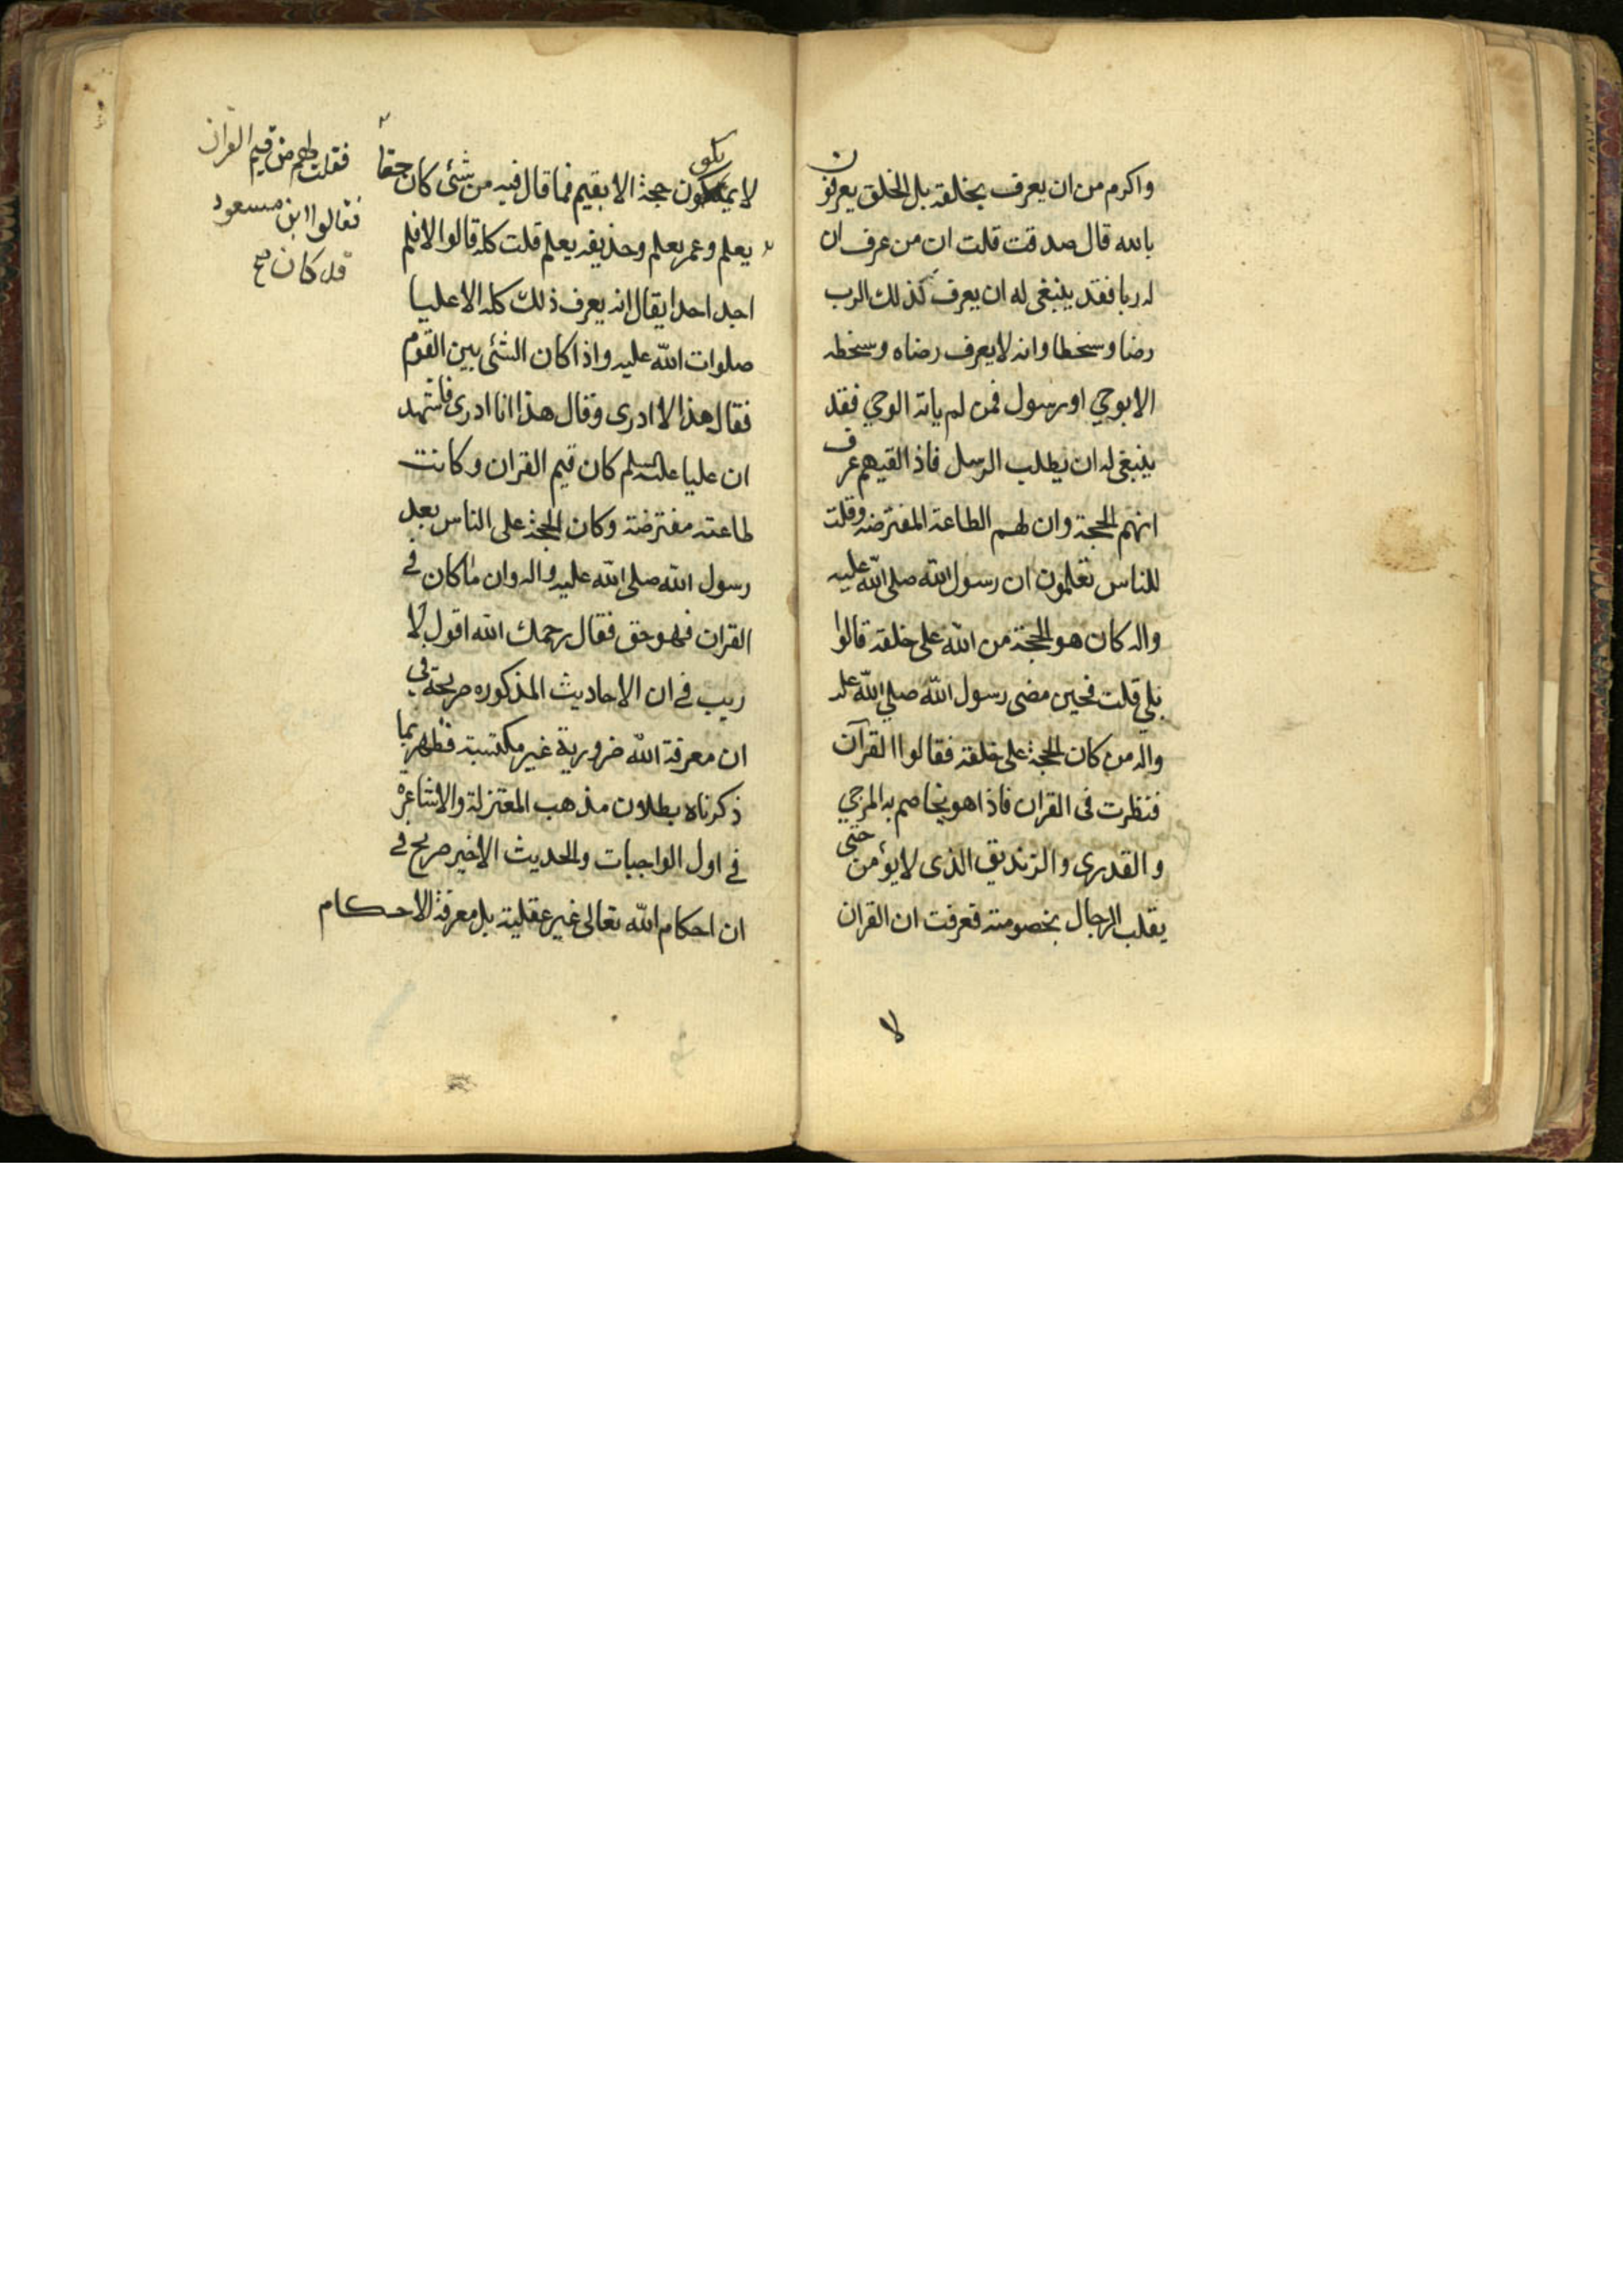 واكرم من ان يعرف بخلقه بل الخلق يعرفون
بالله قال صدقت قلت ان من عرف ان
له ربا فقد ينبغى له ان يعرف كذلك الرب
رضا وسخطا وانه لا يعرف رضاه وسخطه
الا بوحي او رسول فمن لم ياته الوحي فقد
ينبغى له ان يطلب الرسل فاذا لقيهم عرف
انهم الحجة وان لهم الطاعة المفترضه وقلت
للناس تعلمون ان رسول الله صلى الله عليه
واله كان هو الحجة من الله على خلقه قالوا
بلي قلت فحين مضى رسول الله صلي الله عليه
واله من كان الحجة على خلقه فقالوا القرآن
فنظرت فى القران فاذا هو يخاصم به المرجي
والقدرى والزنديق الذى لا يؤمن حتى
يغلب الرجال بخصومته فعرفت ان القران
لا
لا يكون حجة الا بقيم فما قال فيه من شئى كان حقا
فقلت لهم من قيم القران
فقالوا ابن مسعود
قد كان صح
يعلم وعمر يعلم وحذيفه يعلم قلت كله قالوا لا فلم
اجد احدا يقال انه يعرف ذلك كله الا عليا
صلوات الله عليه واذا كان الشئى بين القوم
فقال هذا لا ادرى وقال هذا انا ادرى فاشهد
ان عليا عليه السلم كان قيم القران وكانت
طاعته مفترضة وكان الحجة على الناس بعد
رسول الله صلى الله عليه واله وان ما كان فى
القران فهو حق فقال رحمك الله اقول لا
ريب فى ان الاحاديث المذكوره صريحة في
ان معرفة الله ضرورية غير مكتسبة فظهر بما
ذكرناه بطلان مذهب المعتزلة والاشاعرة
فى اول الواجبات والحديث الاخير صريح فى
ان احكام الله تعالى غير عقلية بل معرفة الاحكام